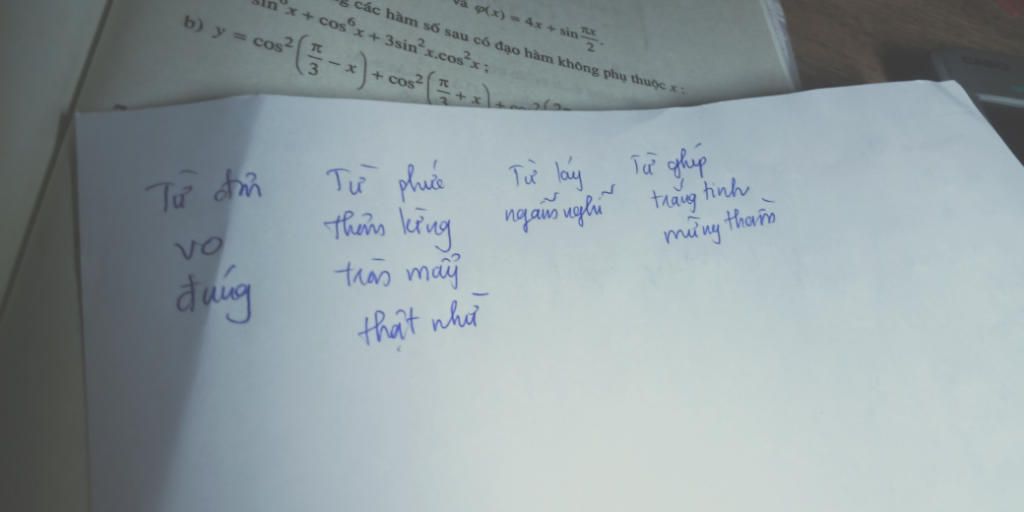 và φ(x) = 4x + sin πx/2.
các hàm số sau có đạo hàm không phụ thuộc x :
sin⁶x + cos⁶x + 3sin²x.cos²x ;
b) y = cos²(π/3 − x) + cos²(π/3 + x) +
Từ đơn
vo
đúng
Từ phức
thầm kừng
trần mẩy
thật nhừ
Từ láy
ngẫm nghĩ
Từ ghép
trắng tinh
mừng thầm